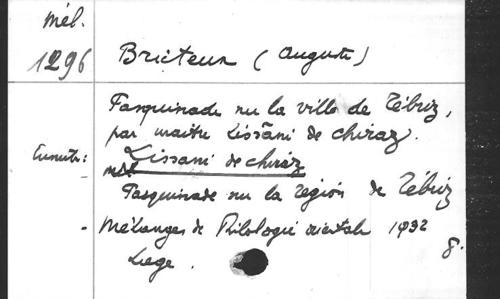 Mél.
1296 Bricteux (Auguste)
Pasquinade sur la ville de Tébriz,
par maitre Lissāni de chiraz.
Lissani de chiráz
Pasquinade sur la région de Tébriz
- Mélanges de Philologie orientale 1932
Liège. 8.